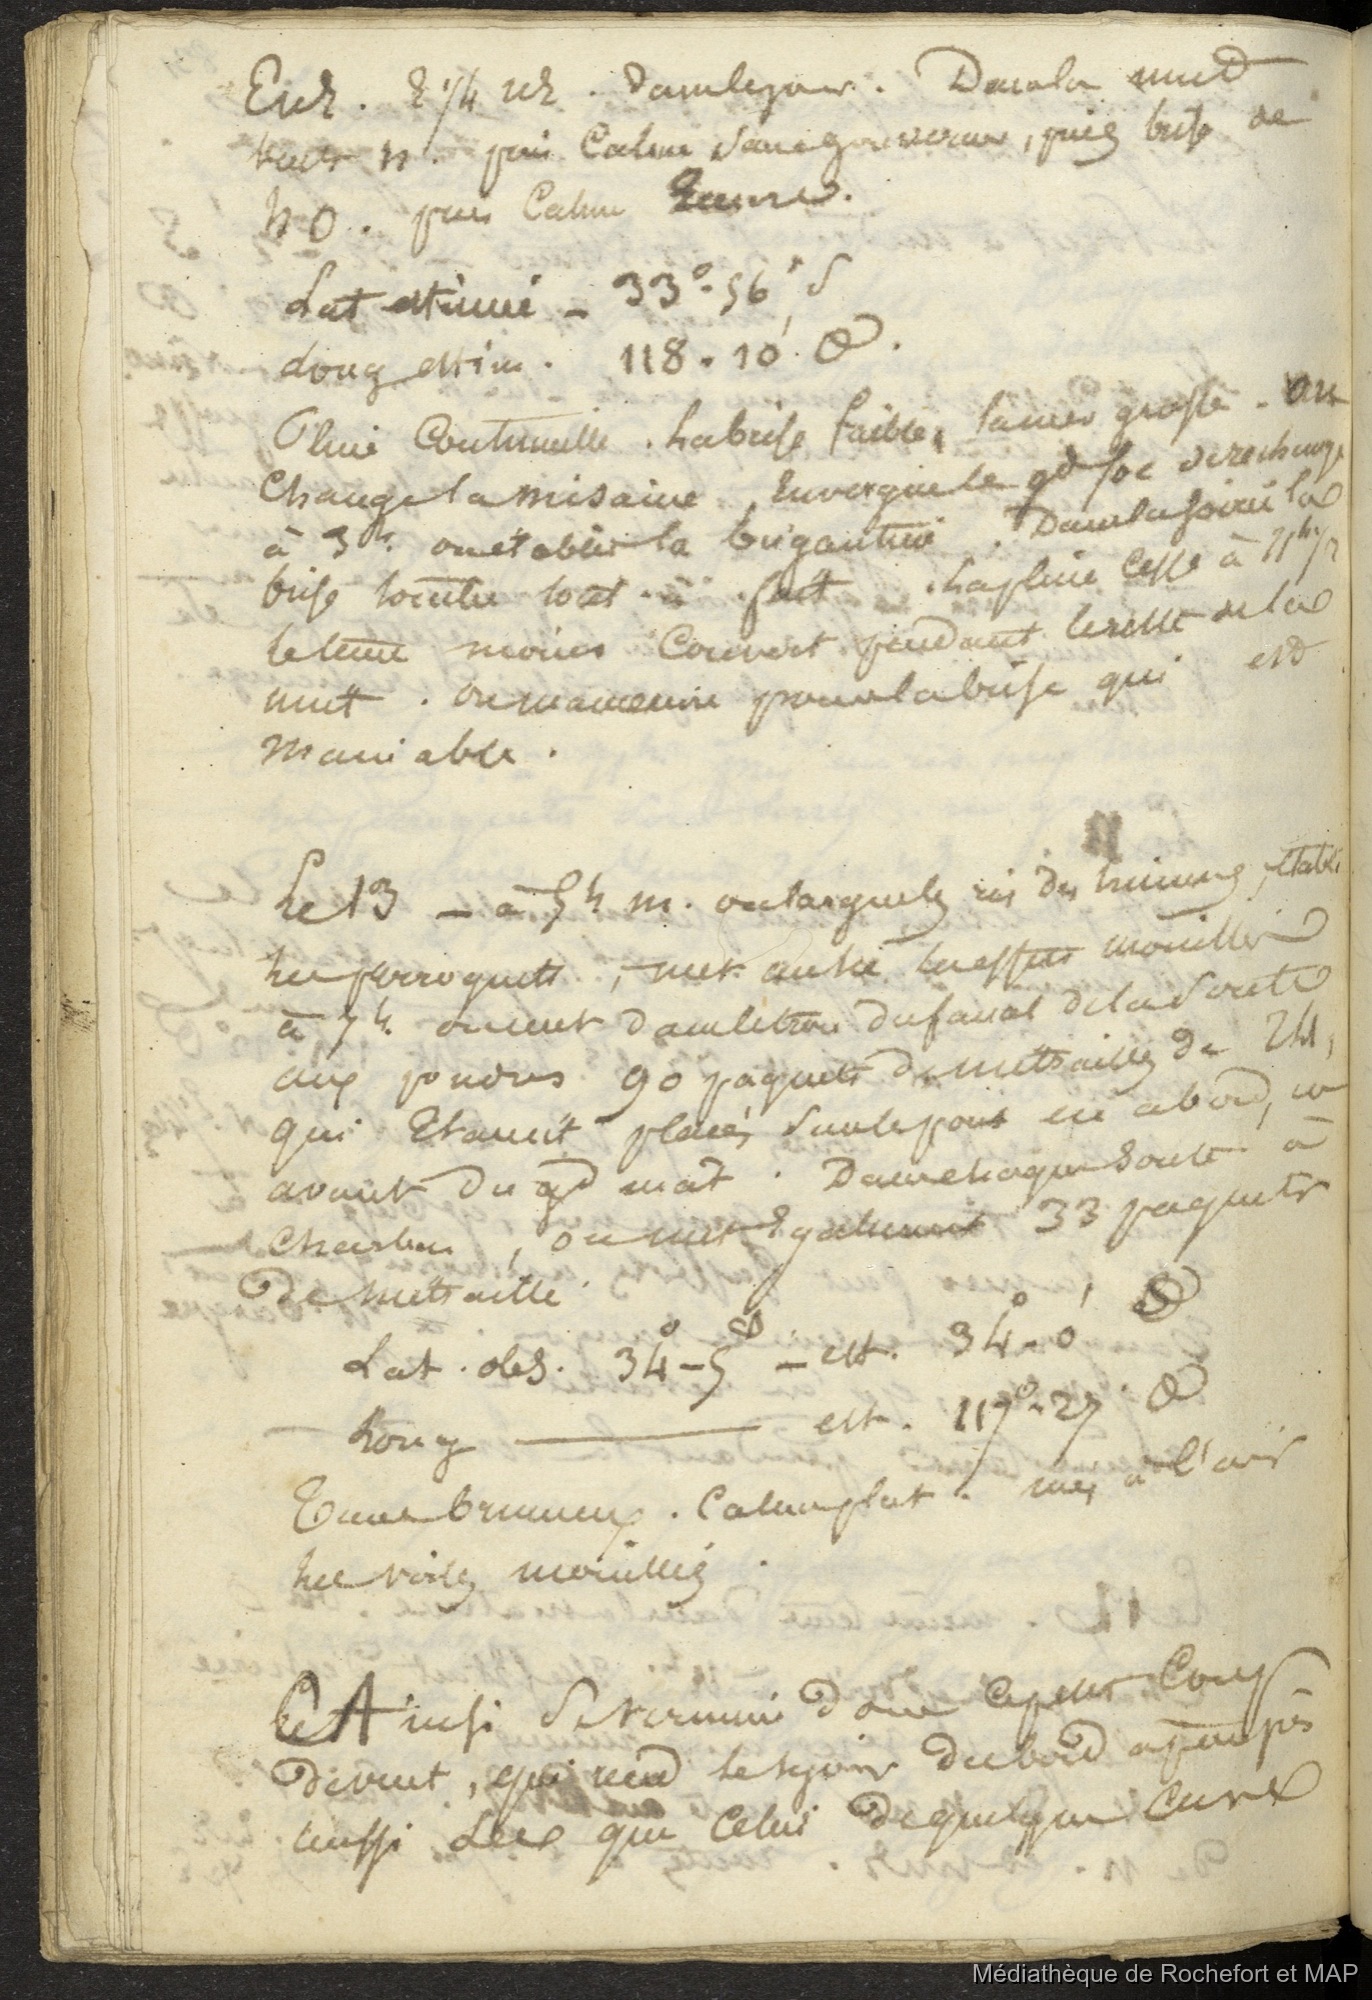 E 1/4 . dans le jour . Dans la nuit
vent N . puis Calme sans gouverner , puis brise de
N O . puis Calme
Lat estimée - 33° . 56' S
Long estim . 118 . 10' O .
Pluie Continuelle . La brise faible, la mer grosse . on
Change la misaine , Envergue le gd foc de rechange
à 3h. on établit la brigantine . Dans la soirée la
brise tombe tout à fait . La pluie Cesse à 11h 1/2
le tems moins Couvert pendant le reste de la
nuit . on manoeuvre pour la brise qui est
Maniable .
Le 13 - à 5h m . on largue les ris des huniers , établi
les perroquets , met au sec les effets mouillés
à 7h. on met dans le trou du fanal de la Soute
aux poudres 90 paquets de mitrailles de 24 ,
qui Etaient placés sur le pont en abord, en
avant du gd mât . Dans chaque Soute à
Charbon , on met Egalement 33 paquets
De mitraille
Lat . obs . 34° - 5 - est . 34° - 0' S
Long ——— est . 117° . 27' O
Tems brumeux . Calme plat . mis à l'air
les voiles mouillées .
Ainsi Se termine donc Ce petit Coup
De vent , qui rend le séjour du bord à peu près
aussi sec que Celui De quelque Cave
Médiathèque de Rochefort et MAP